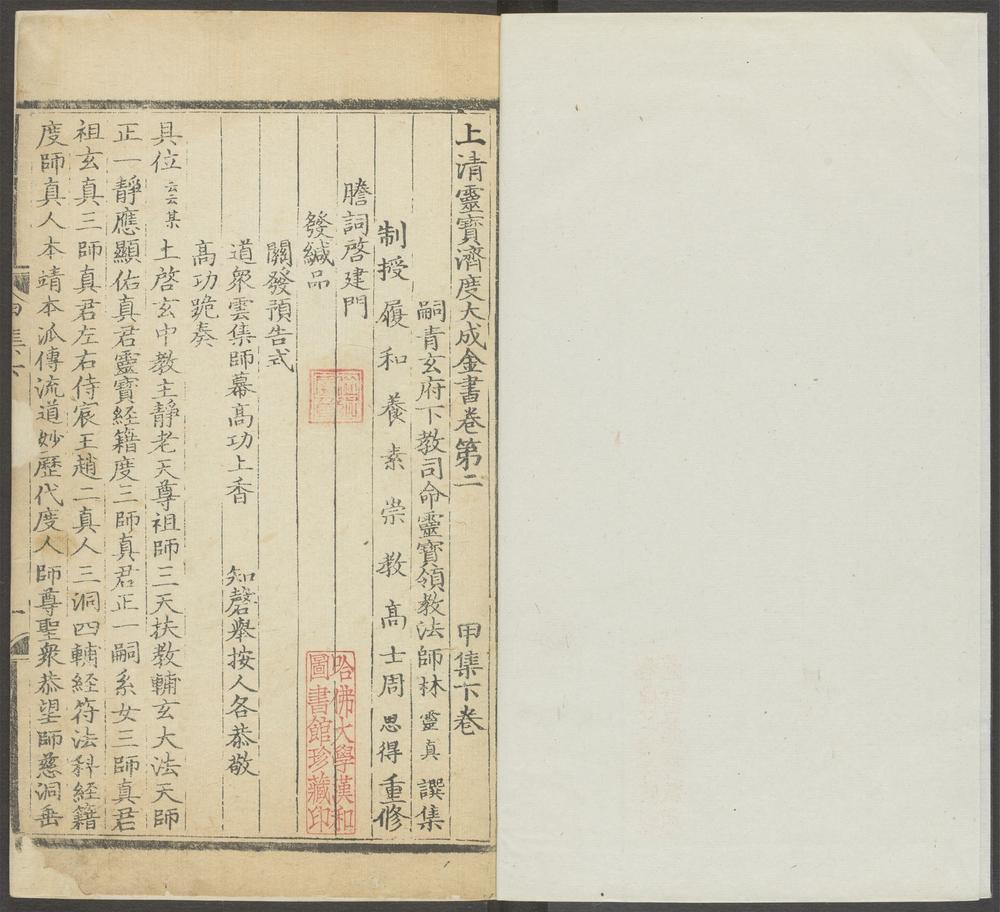 上清靈寶濟度大成金書卷第二 甲集下卷
嗣青玄府下教司命靈寶領教法師林靈真 譔集
制授履和養素崇教高士周思得重修
謄詞啓建門
發緘品
關發預告式
道衆雲集師幕高功上香 知磬舉按人各恭敬
高功跪奏
具位云云某上啓玄中教主靜老天尊祖師三天扶教輔玄大法天師
正一靜應顯佑真君靈寶經籍度三師真君正一嗣系女三師真君
祖玄真三師真君左右侍宸王趙二真人三洞四輔經符法科經籍
度師真人本靖本派傳流道妙歷代度人師尊聖衆恭望師慈洞垂
哈佛大學漢和
圖書館珍藏印